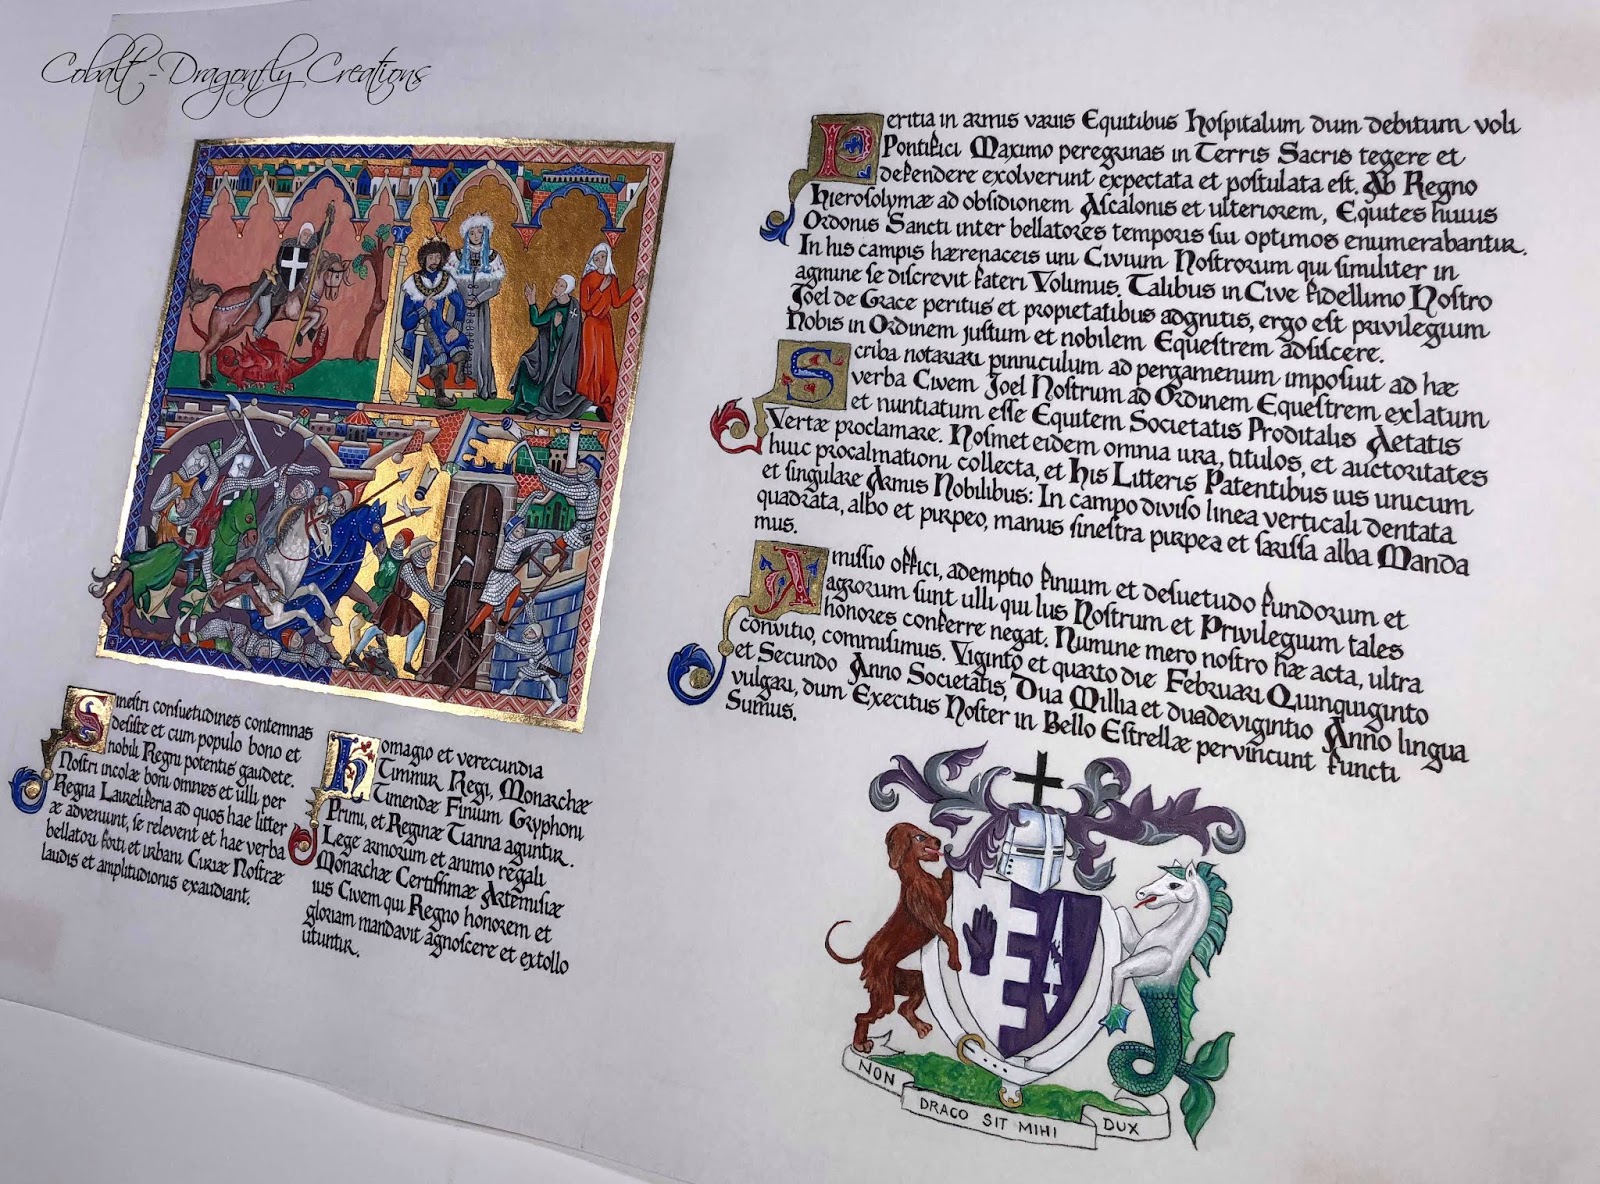 Cobalt-Dragonfly Creations
Sinestri consuetudines contemnas
desiste et cum populo bono et
nobili Regni potentis gaudete.
Nostri incolæ boni omnes et ulli per
Regna Laurelifera ad quos hae litter
æ adveniunt, se relevent et hae verba
bellatori forti et urbani Curiæ Nostræ
laudis et amplitudionis exaudiant.
Homagio et verecundia
Timmur Regi, Monarchæ
Timendæ Finium Gryphoni
Primi, et Reginæ Tianna aguntur.
Lege armorum et animo regali
Monarchæ Certissimæ Artemisiæ
ius Civem qui Regno honorem et
gloriam mandavit agnoscere et extollo
utuntur.
Peritia in armis variis Equitibus Hospitalum dum debitum voli
Pontifici Maximo peregrinas in Terris Sacris tegere et
defendere exolverunt expectata et postulata est. Ab Regno
Hierosolymæ ad obsidionem Ascalonis et ulteriorem, Equites huius
Ordonis Sancti inter bellatores temporis sui optimos enumerabantur.
In his campis hærenaceis uni Civium Nostrorum qui similiter in
agmine se discrevit fateri Volumus. Talibus in Cive fidellimo Nostro
Joel de Grace peritus et propietatibus adgnitis, ergo est privilegium
Nobis in Ordinem justum et nobilem Equestrem adsiscere.
Scriba notariari punniculum ad pergamenum imposiut ad hæ
verba Civem Joel Nostrum ad Ordinem Equestrem exlatum
et nuntiatum esse Equitem Societatis Proditalis Aetatis
Vertæ proclamare. Nosmet eidem omnia iura, titulos, et auctoritates
huic procalmationi collecta, et His Litteris Patentibus ius unicum
et singulare Armis Nobilibus: In campo diviso linea verticali dentata
quadrata, albo et purpeo, manus sinestra purpea et sarissa alba Manda
mus.
Amissio offici, ademptio finium et desuetudo fundorum et
agrorum sunt ulli qui Ius Nostrum et Privilegium tales
honores conferre negat. Numine mero nostro hæ acta, ultra
convitio, commisimus. Viginto et quarto die Februari Quinquiginto
et Secundo Anno Societatis, Dua Millia et duadevigintio Anno lingua
vulgari, dum Execitus Noster in Bello Estrellæ pervincunt functi
Sumus.
NON DRACO SIT MIHI DUX